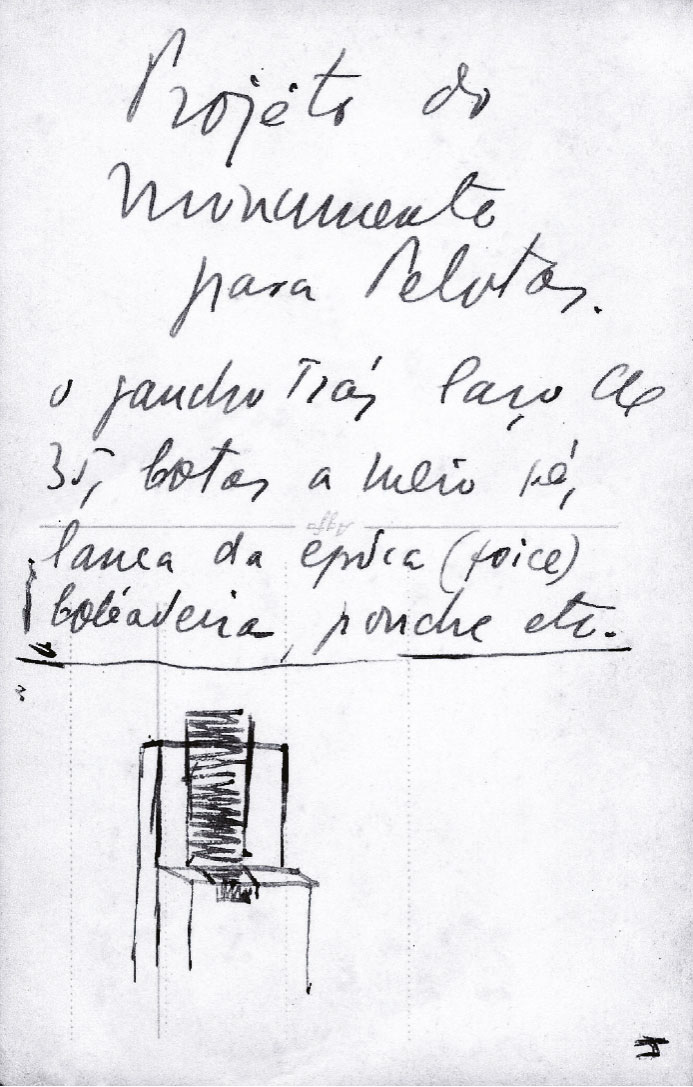 Projéto do
monumento
para Pelotas.
o gaucho Trás laço de
35, botas a meio pé,
lança da epóca (foice)
boléadeira, ponche etc.